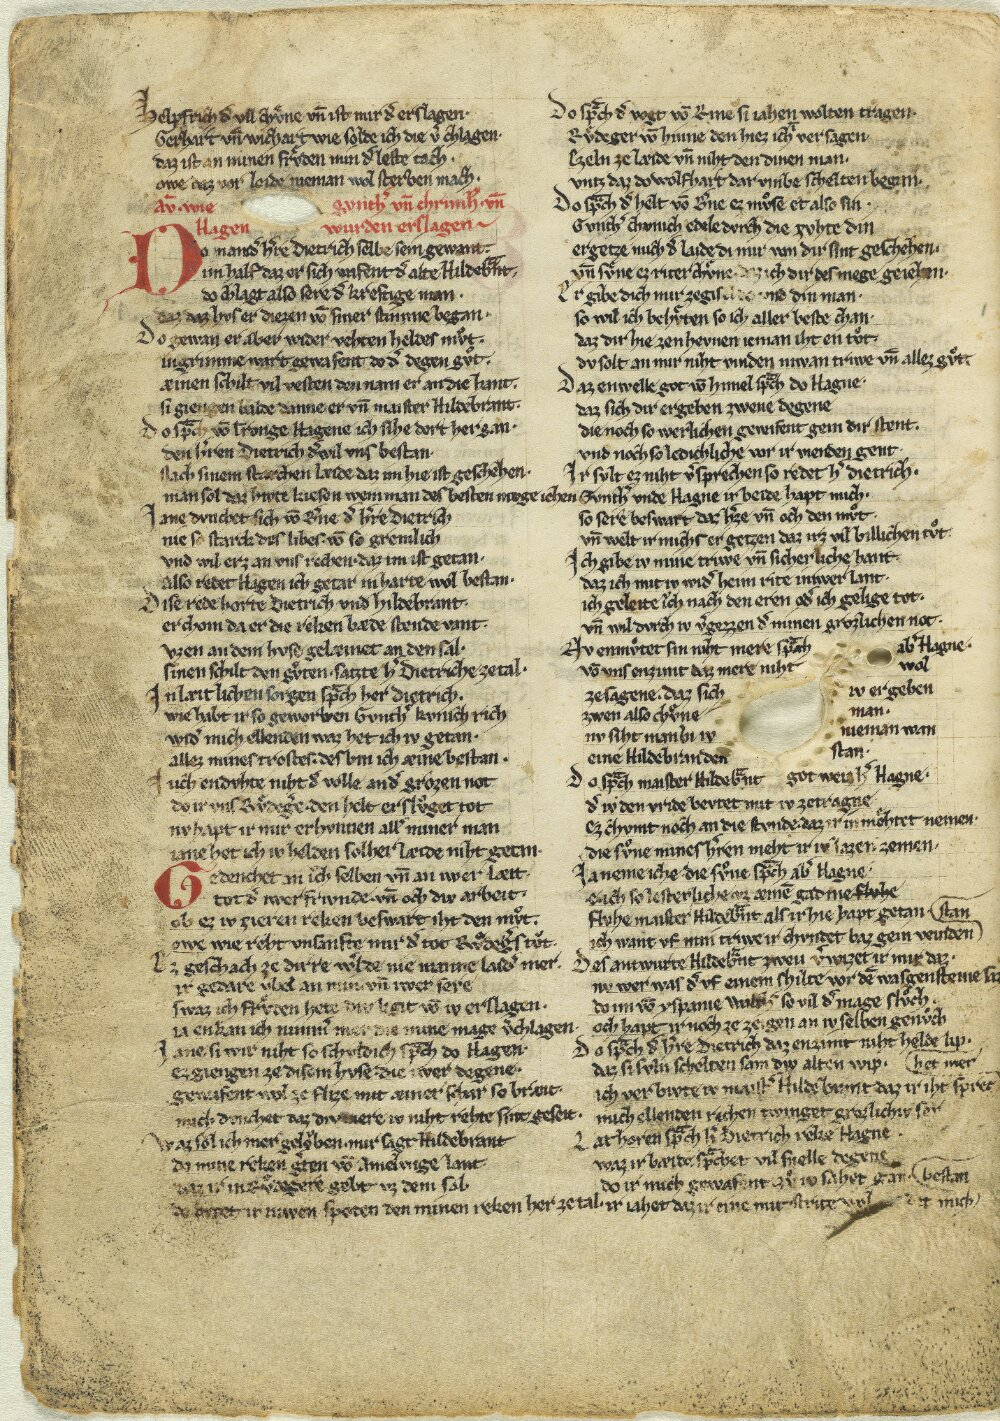 Helpfrich d̾ vil chv̊ne vn̄ ist mir d̾ erslagen·
Gerhart vn̄ wichart wie solde ich die v̾chlagen·
daz ist an minen frv̊den mir d̾ leste tach·
owe daz vor leide nieman wol sterben mach·
av̾· wie gvnth̾ vn̄ chrimh̾· vn̄
Hagen wurden erslagen
Do nand h̾re Dietrich selbe sein gewant·
im half daz er sich wafent d̾ alte Hildeb̾nt·
do chlagt also sere d̾ kreftige man·
daz daz hvs er diezen vō siner stimme began·
Do gewan er aber wider rehten heldes mv̊t·
in grimme wart gewafent do d̾ degen gv̊t·
æinen schilt vil vesten den nam er an die hant·
si giengen balde danne er vn̄ maister Hildebrant·
Do sp̾ch vō tronge Hagene ich sihe dort her gan·
den h̾ren Dietrich d̾ wil vns bestan·
nach sinem starchen læide daz im hie ist geschehen·
man sol daz hivte kiesen wem man des besten mvge iehen
Jane dvnchet sich vō b̾ne d̾ h̾re dietrich
nie so starch des libes vō so gremlich
vnd wil erz an vns rechen· daz im ist getan·
also redet Hagen ich getar in harte wol bestan·
Dise rede horte Dietrich vnd hildebrant·
er chom da er die reken bæde stende vant·
vzen an dem hvse gelæinet an den sal·
sinen schilt den gv̊ten· satzte h̾ Dietriche ze tal·
In læitlichen sorgen sp̾ch her dietrich·
wie habt ir so geworben Gvnth̾ kvnich rich
wid̾ mich ellenden waz het ich iv getan·
alles mines trostes· des bin ich æine bestan·
Iuch endvhte niht d̾ volle an d̾ grozen not
do ir vns Rv̊deg̾e· den helt erslv̊get tot
nv hapt ir mir erbvnnen all̾ miner man
iane het ich iv helden solher læide niht getan·
Gedenchet an ich selben vn̄ an iwer læit·
tot d̾ iwer frivnde· vn̄ och div arbeit·
ob ez iv zieren reken beswart iht den mv̊t·
owe wie reht vnsanfte mir d̾ tot Rv̊deg̾s tv̊t·
Ez geschach ze dirre w̾lde nie manne laid̾ mer·
ir gedaht v̊bel an min vn̄ iwer sere
swaz ich frv̊den hete div ligit vō iv erslagen·
ia enkan ich nimm̾ mer die mine mage v̾chlagen·
Jane si wir niht so schvldich sp̾ch do Hagen·
ez giengen ze disem hvse· die iwer degene·
gewafent wol ze flize mit æiner schar so bræit·
mich dvnchet daz div mere iv niht rehte sint geseit·
Waz sol ich mer gelv̊ben· mir sagt Hildebrant
do mine reken g̾ten vō Amelunge lant·
daz ir in Rv̊degere gebt vz dem sal
do bvtet ir niwen spoten den minen reken her ze tal·
Do sp̾ch d̾ vogt vō Rine si iahen wolten tragen·
Rv̊deger vō hinne den hiez ich v̾sagen·
Ezeln ze læide vn̄ niht den dinen man·
vntz daz do wolfhart dar vmbe schelten began·
Do sp̾ch d̾ helt vō b̾ne ez mv̊se et also sin·
Gvnth̾ chvnich edele dvrch die zvhte din
ergetze mich d̾ læide di mir von dir sint geschehen·
vn̄ sv̊ne ez riter chv̊ne· daz ich dir des mege geiehen·
Er gibe dich mir ze gisel dv vnd din man·
so wil ich behv̊ten so ich aller beste chan·
daz dir hie zen hevnen ieman iht en tv̊t·
dv solt an mir niht vinden niwan triwe vn̄ allez gv̊t·
Daz enwelle got vō himel sp̾ch do Hagne·
daz sich dir ergeben zwene degene
die noch so werlichen gewafent gein dir stent·
vnd noch so ledichliche vor ir vienden gent·
Ir svlt ez niht v̾sprechen so redet h̾ dietrich·
Gvnth̾ vnde Hagne ir beide hapt mich·
so sere beswart daz h̾ze vn̄ och den mv̊t·
vn̄ welt ir michs ergetzen daz irz vil billichen tv̊t·
Ich gibe iv mine triwe vn̄ sicherliche hant·
daz ich mit iv wid̾ heim rite in iwer lant·
ich geleite ich nach den eren od̾ ich gelige tot·
vn̄ wil dvrch iv v̾gezzen d̾ minen grozlichen not·
Nv enmv̊tet sin niht mere sp̾ch ab̾ Hagne·
vō vns enzimt daz mere niht wol
ze sagene· daz sich iv ergeben
zwen also chv̊ne man·
nv siht man bi iv nieman wan
eine Hildebranden stan·
Do sp̾ch maister Hildeb̾nt got weiz h̾ Hagne·
d̾ iv den vride bevtet mit iv ze tragne
ez chvmt noch an die stvnde· daz ir in mv̊htet nemen·
die sv̊ne mines h̾ren meht ir iv lazen zemen·
Ja neme iche die sv̊ne sp̾ch ab̾ Hagne·
e ich so lesterliche vz æinē gadme flvhe
flvhe maister Hildeb̾nt als ir hie hapt getan (stan
ich want vf min triwe ir chvndet baz gein veinden)
Des antwurte Hildeb̾nt zwev v̾wizet ir mir daz·
nv wer was d̾ vf einem schilte vor dē wasgensteine saz
do im vō yspanie walth̾ so vil d̾ mage slv̊ch·
och hapt ir noch ze zeigen an iv selben genv̊ch
Do sp̾ch d̾ h̾re Dietrich daz enzimt niht helde lip·
daz si svln schelten sam div alten wip· (het mer
ich verbivte iv maist̾ Hildebrant daz ir iht sprec
mich ellenden richen twinget grozlichiv ser
Lat horen sp̾ch h̾ Dietrich reke Hagne·
waz ir bæide sp̾chet vil snelle degene
do ir mich gewafent zv̊ iv sahet gan (bestan
ir iahet daz ir eine mit strite wol dt mich)